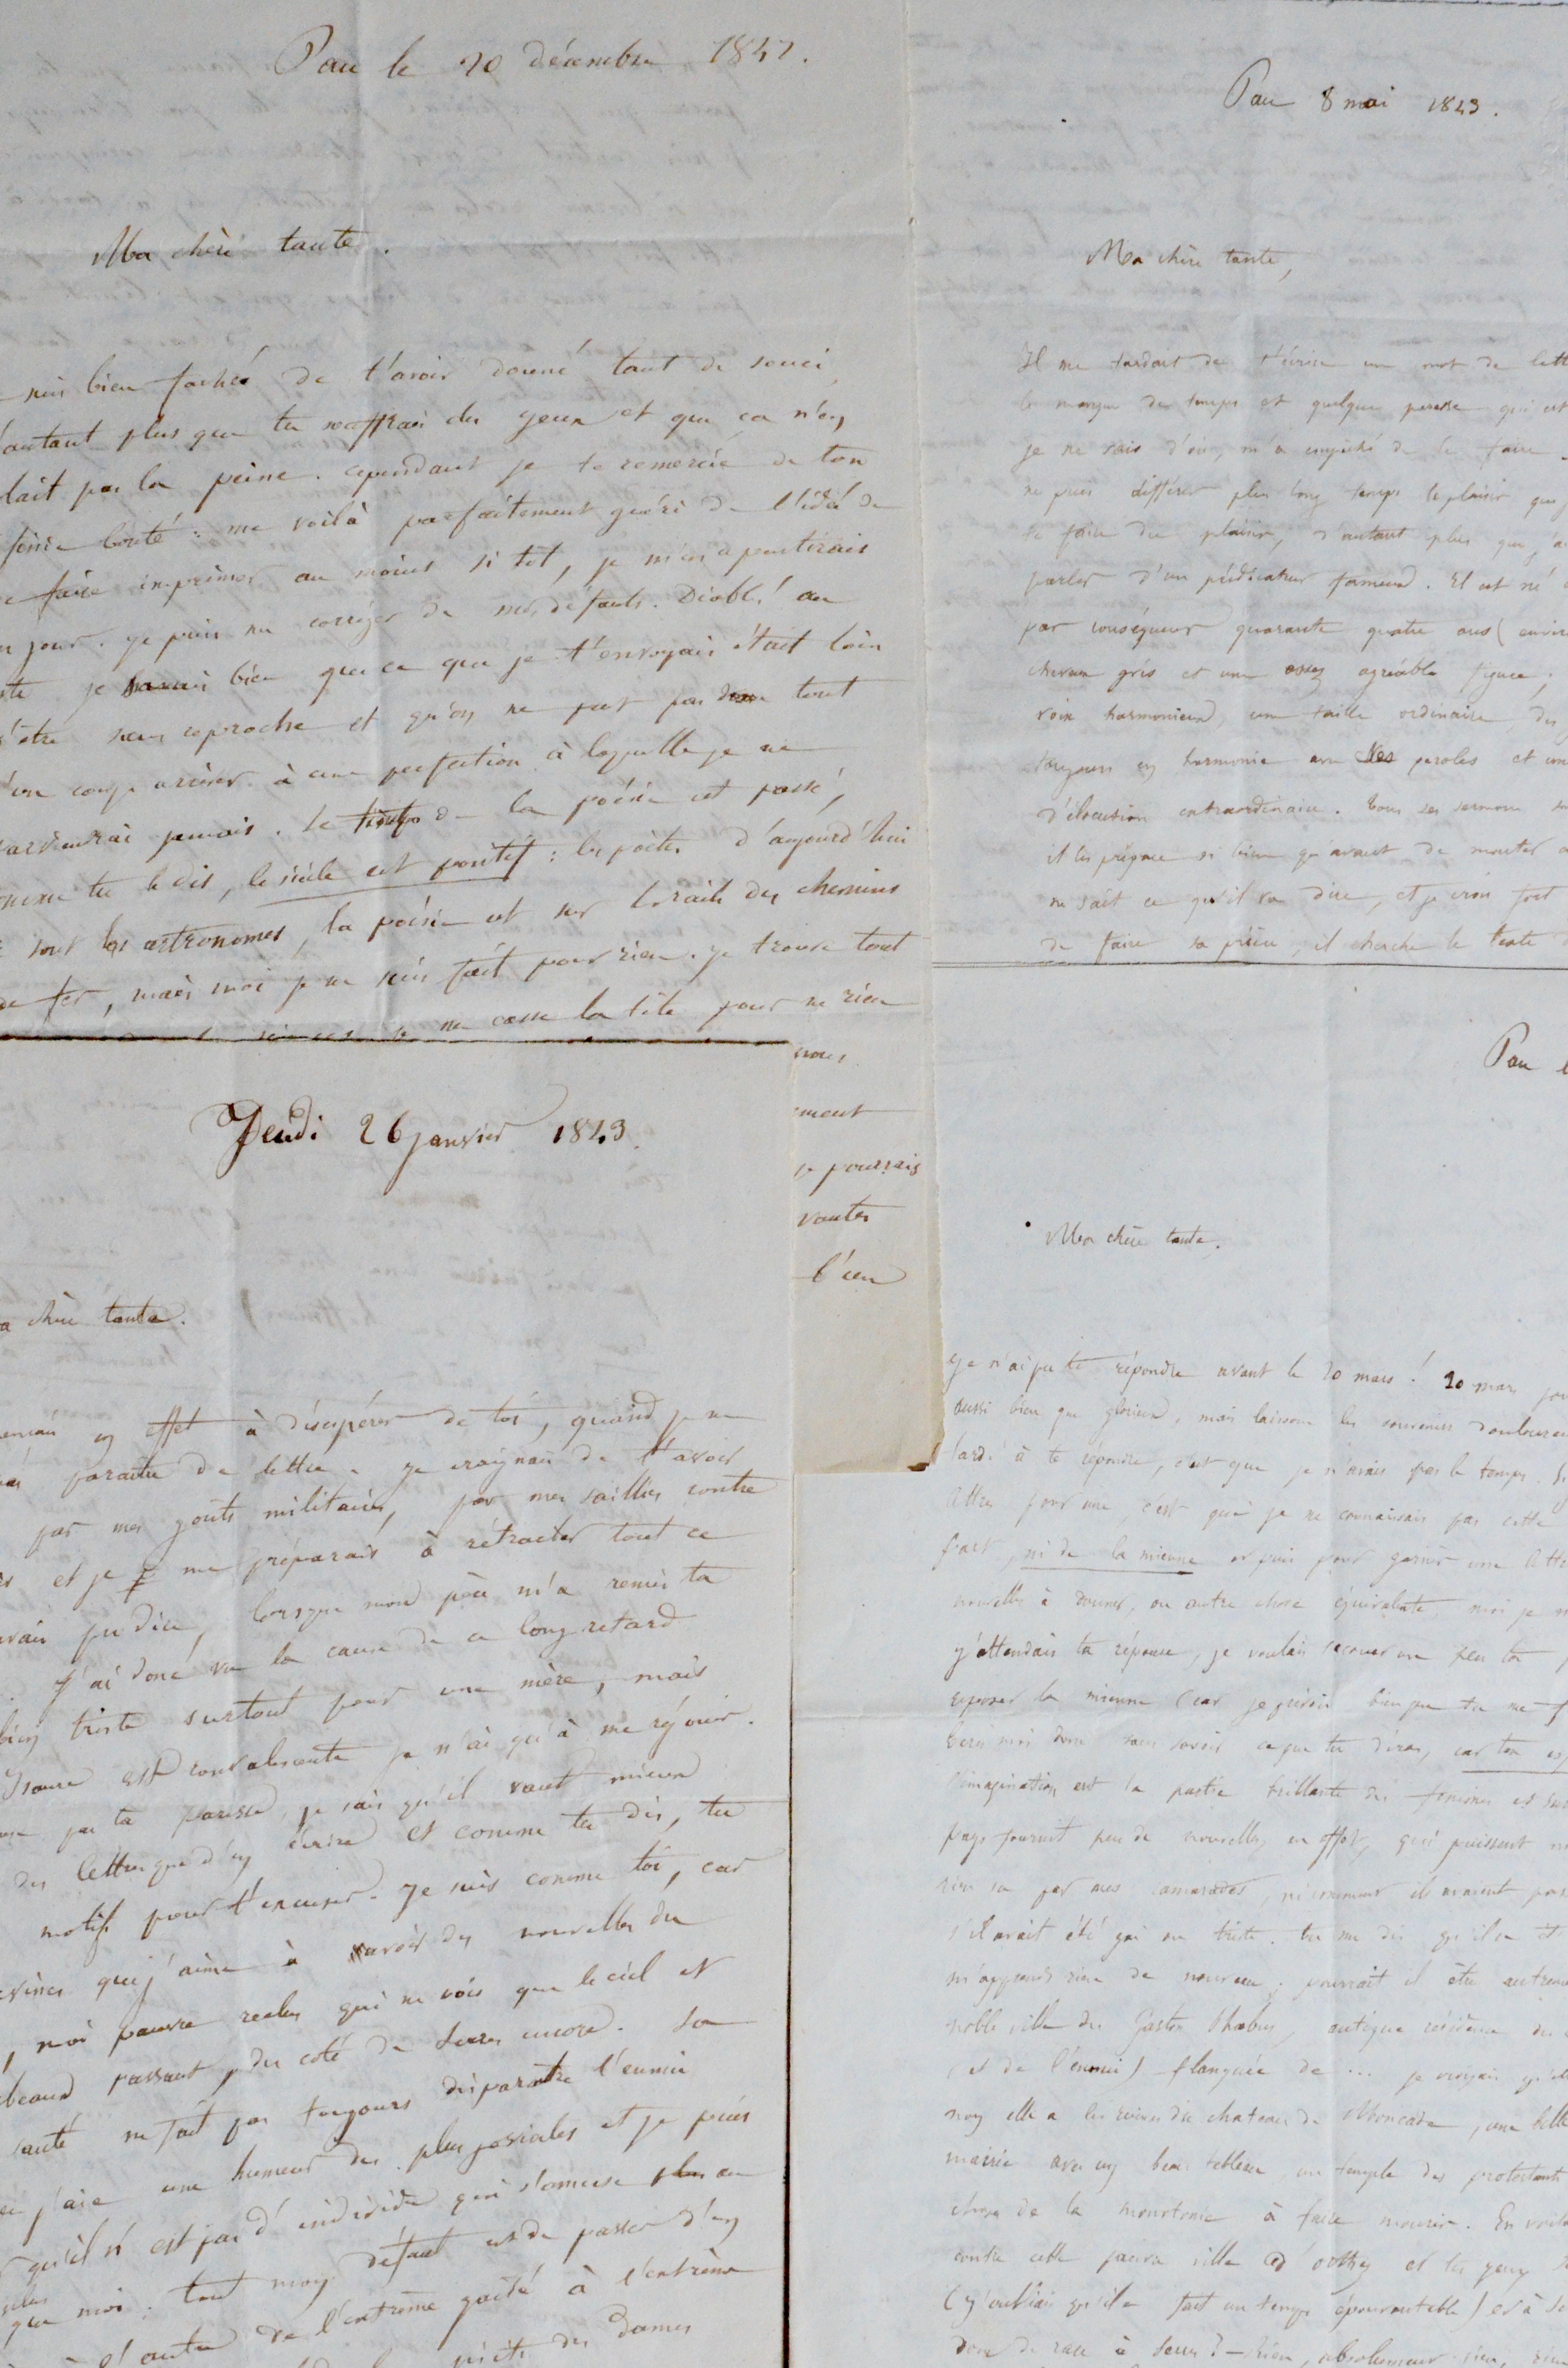 Pau le 20 décembre 1842.
Ma chère tante.
suis bien faché de t'avoir donné tant de souci,
autant plus que tu souffrais des yeux et que ça n'en
lait pas la peine. cependant je te remercie de ton
bonté : me voilà parfaitement guéri de l'idée de
faire imprimer au moins si tot, je m'en repentirais
un jour. je puis me corriger de mes défauts. Diable! au
reste je savais bien que ce que je t'envoyais était loin
d'être sans reproche et qu'on ne peut pas dans tout
d'un coup arriver à une perfection à laquelle je ne
parviendrai jamais. le temps de la poésie est passé,
comme tu le dis, le siècle est positif : les poètes d'aujourd'hui
sont les astronomes, la poésie est sur les rails des chemins
de fer, mais moi je ne suis fait pour rien. je trouve tout
je me casse la tête pour ne rien
nous
ement
je pourrais
vantes
l'eau
Jeudi 26 janvier 1843.
a chère tante.
en effet à désespérer de toi, quand je ne
paraitre de lettre. je craignais de t'avoir
par mes goûts militaires, par mes saillies contre
et je me préparais à rétracter tout ce
avais pu dire, lorsque mon père m'a remis ta
j'ai donc vu la cause de ce long retard
bien triste surtout pour une mère, mais
Isaure est convalescente je n'ai qu'à me réjouir.
pas ta paresse, je sais qu'il vaut mieux
des lettres que d'en écrire et comme tu dis, tu
motifs pour t'excuser. je suis comme toi, car
que j'aime à savoir des nouvelles du
, moi pauvre reclus qui ne vois que le ciel et
passant, du coté de Serres encore. La
santé ne fait pas toujours disparaître l'ennui
j'aie une humeur des plus joviales et je puis
qu'il n'est pas d'individu qui s'amuse plus ou
que moi : tout mon défaut est de passer d'un
l'autre de l'extrème gaité à l'extrème
des dames
Pau 8 mai 1843.
Ma chère tante,
Il me tardait de t'écrire un mot de lett
le manque de temps et quelque paresse qui est
je ne sais d'où, m'a empêché de le faire.
ne puis différer plus long temps le plaisir que
te faire du plaisir, d'autant plus que j'a
parler d'un prédicateur fameux. Il est né
par conséquent quarante quatre ans (envir
cheveux gris et une assez agréable figure ;
voix harmonieuse, une taille ordinaire, des
toujours en harmonie avec ses paroles et une
d'élocution extraordinaire. Tous ses sermons
il les prépare si bien qu'avant de monter
ne sait ce qu'il va dire, et je crois fort
de faire sa prière, il cherche le texte
Pau l
Ma chère tante.
Je n'ai pu te répondre avant le 20 mars ! 20 mars jou
aussi bien que glorieux, mais laissons les souvenirs douloureu
tardé à te répondre, c'est que je n'avais pas le temps.
c'est que je ne connaissais pas cette
part, ni de la mienne et puis pour garnir une lettre
nouvelles à donner, ou autre chose équivalente, moi je
j'attendais ta réponse, je voulais secouer un peu ta
exposer la mienne (car
Ecris moi donc sans savoir ce que tu diras, car ton
l'imagination est la partie brillante des femmes et
pays fournit peu de nouvelles, en effet, qui puissent
rien su par mes camarades, ils avaient
s'il avait été gai ou triste. tu me dis qu'il
m'apprends rien de nouveau ; pourrait il être autrem
noble ville de Gaston Phœbus, antique résidence des
(et de l'ennui) flanquée de ... je croyais
non elle a les ruines du chateau de Moncade, une belle
mairie avec un beau tableau, un temple des protestants
de la monotonie à faire mourir. En voilà
contre cette pauvre ville d'orthez et les
(j'oubliais qu'il a fait un temps épouvantable) et à
donc de rare à Serres ? - Rien, absolument rien,